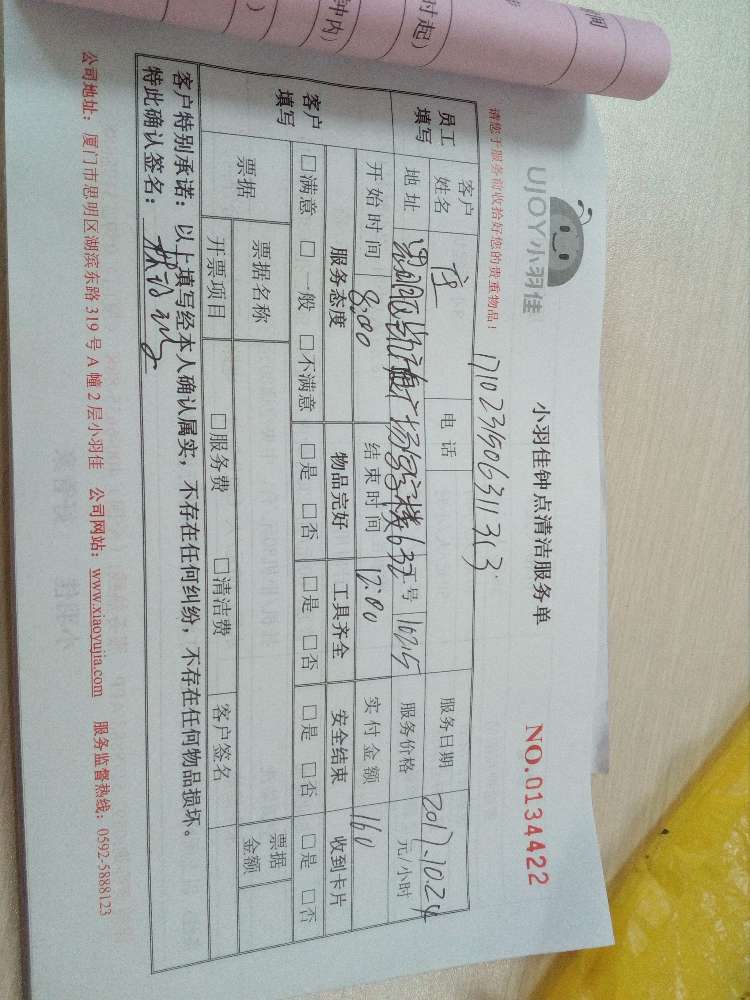 UJOY小羽佳
小羽佳钟点清洁服务单
NO.0134422
请您于服务前收拾好您的贵重物品！
1710231906311313
员工填写
客户姓名
电话
服务日期 2017.10.24
地址
工号 16215
服务价格 元/小时
开始时间 8:00
结束时间 12:00
实付金额 160
客户填写
服务态度 物品完好 工具齐全 安全结束 收到卡片
□满意 □一般 □不满意 □是 □否 □是 □否 □是 □否 □是 □否
票据
票据名称
票据金额
开票项目 □服务费 □清洁费 客户签名
客户特别承诺：以上填写经本人确认属实，不存在任何纠纷，不存在任何物品损坏。
特此确认签名：
公司地址：厦门市思明区湖滨东路319号A幢2层小羽佳 公司网站：www.xiaoyujia.com 服务监督热线：0592-5888123
时起）
钟内）